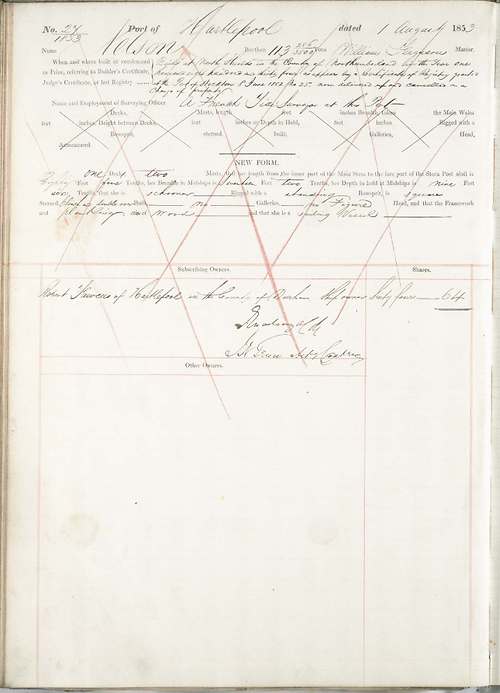 No. 24/1853 Port of Hartlepool dated 1 August 1853
Name Burthen 113 Tons William Master.
When and where built or condemned Built at North Shields in the County of Northumberland in the Year one
as Prize, referring to Builder's Certificate, thousand eight hundred and thirty four as appears by a Certificate of Registry granted
Judge's Certificate, or last Registry at the Port of London 8 June 1852 No. 251 now delivered up and cancelled on a
change of property
Name and Employment of Surveying Officer A. French Tide Surveyor at this Port
Decks, Masts, length feet inches Breadth the Main Wales
feet inches, Height between Decks, feet inches or Depth in Hold, feet inches, Rigged with a
Bowsprit, sterned, built, Galleries, Head,
Admeasured
NEW FORM.
Has one Deck two Masts, that her length from the inner part of the Main Stem to the fore part of the Stern Post aloft is
Feet four Tenths, her Breadth in Midships is Feet two Tenths, her Depth in hold at Midships is nine Feet
six Tenths, that she is schooner Rigged with a standing Bowsprit, is square
Sterned, Built, no Galleries, no Figure Head, and that the Framework
and planking and wood and that she is a sailing Vessel
Subscribing Owners. Shares.
Robert of Hartlepool in the County of Durham Ship owner Sixty four 64
Other Owners.